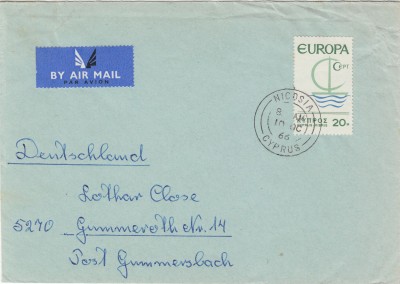 BY AIR MAIL
PAR AVION
EUROPA
CEPT
ΚΥΠΡΟΣ
20
NICOSIA
10 OC
66
CYPRUS
Deutschland
Lothar Close
5270 Gummeroth Nr. 14
Post Gummersbach